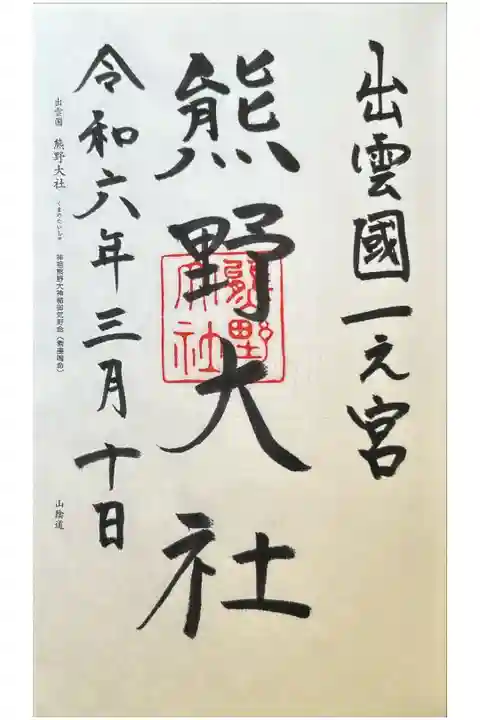 出雲國一之宮
熊野大社
熊野大社
令和六年三月十日
出雲国 熊野大社 くまのたいしゃ 神祖熊野大神櫛御気野命(素戔嗚命) 山陰道